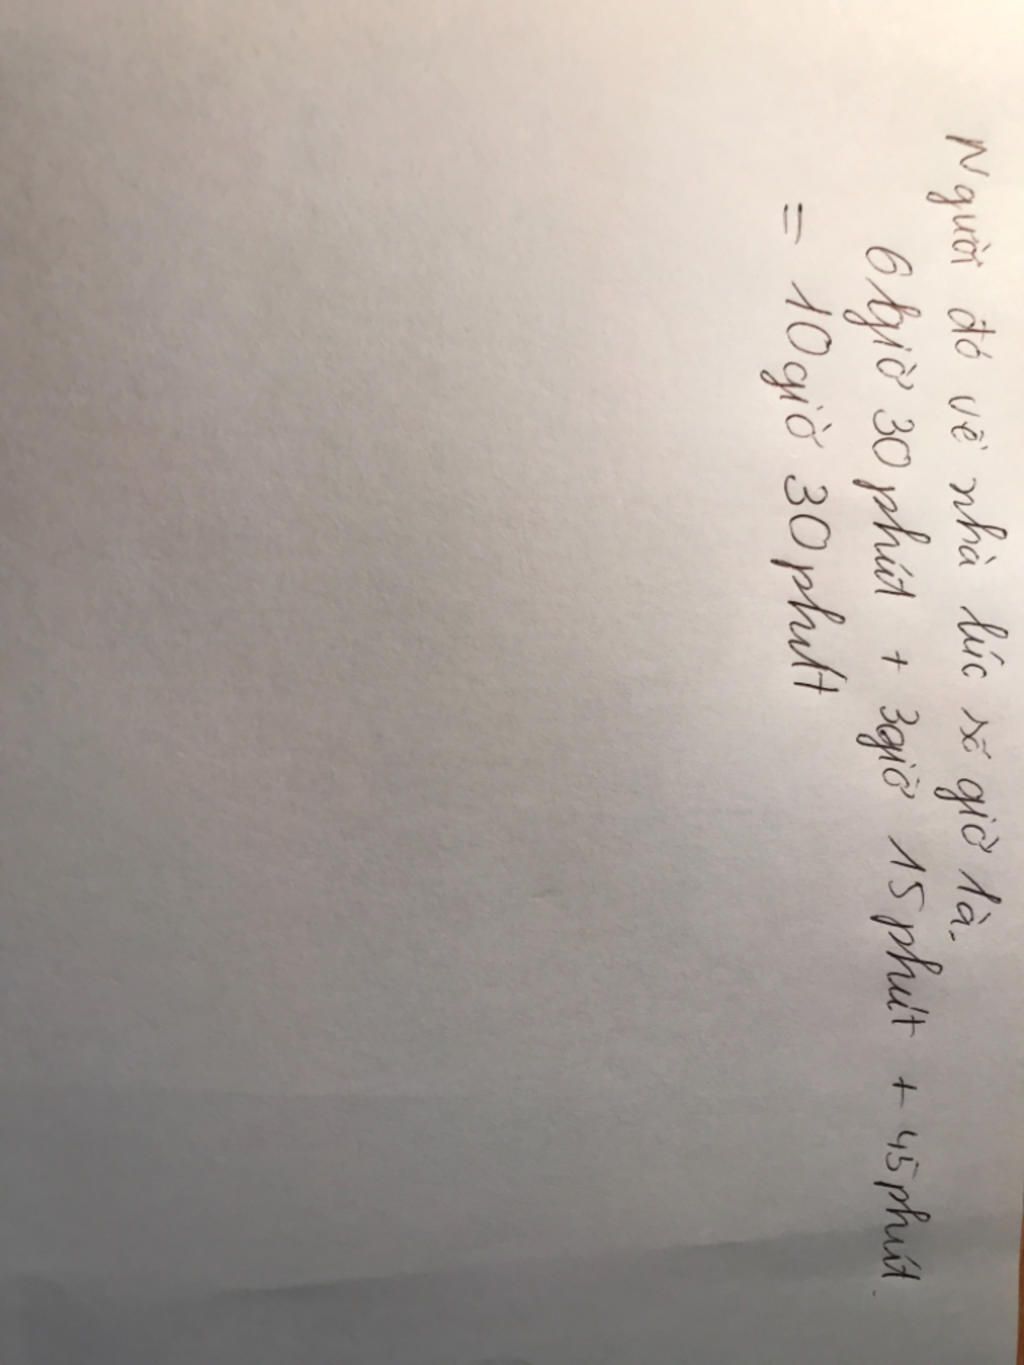 Người đó về nhà lúc số giờ là.
6 giờ 30 phút + 3giờ 15 phút + 45 phút.
= 10 giờ 30 phút